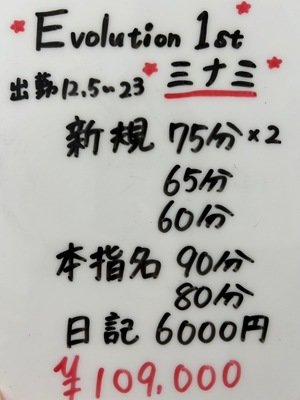 Evolution 1st
出勤12.5~23 三ナ三
新規 75分×2
65分
60分
本指名 90分
80分
日記 6000円
¥109,000